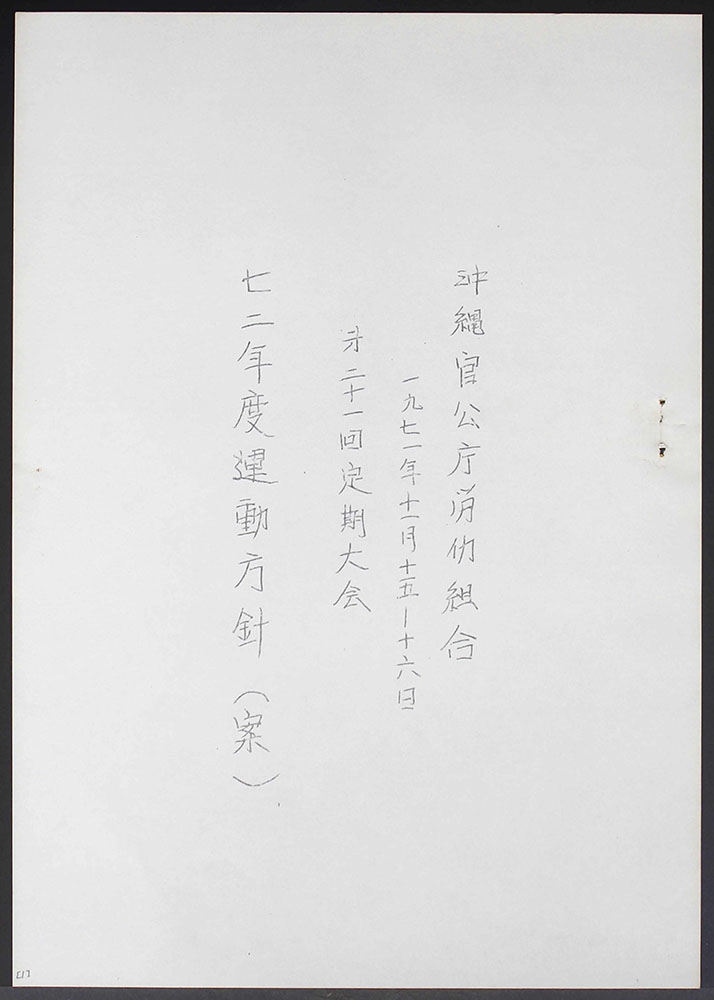 沖縄官公庁労仂組合
一九七一年十一月十五ー十六日
才二十一回定期大会
七二年度運動方針（案）